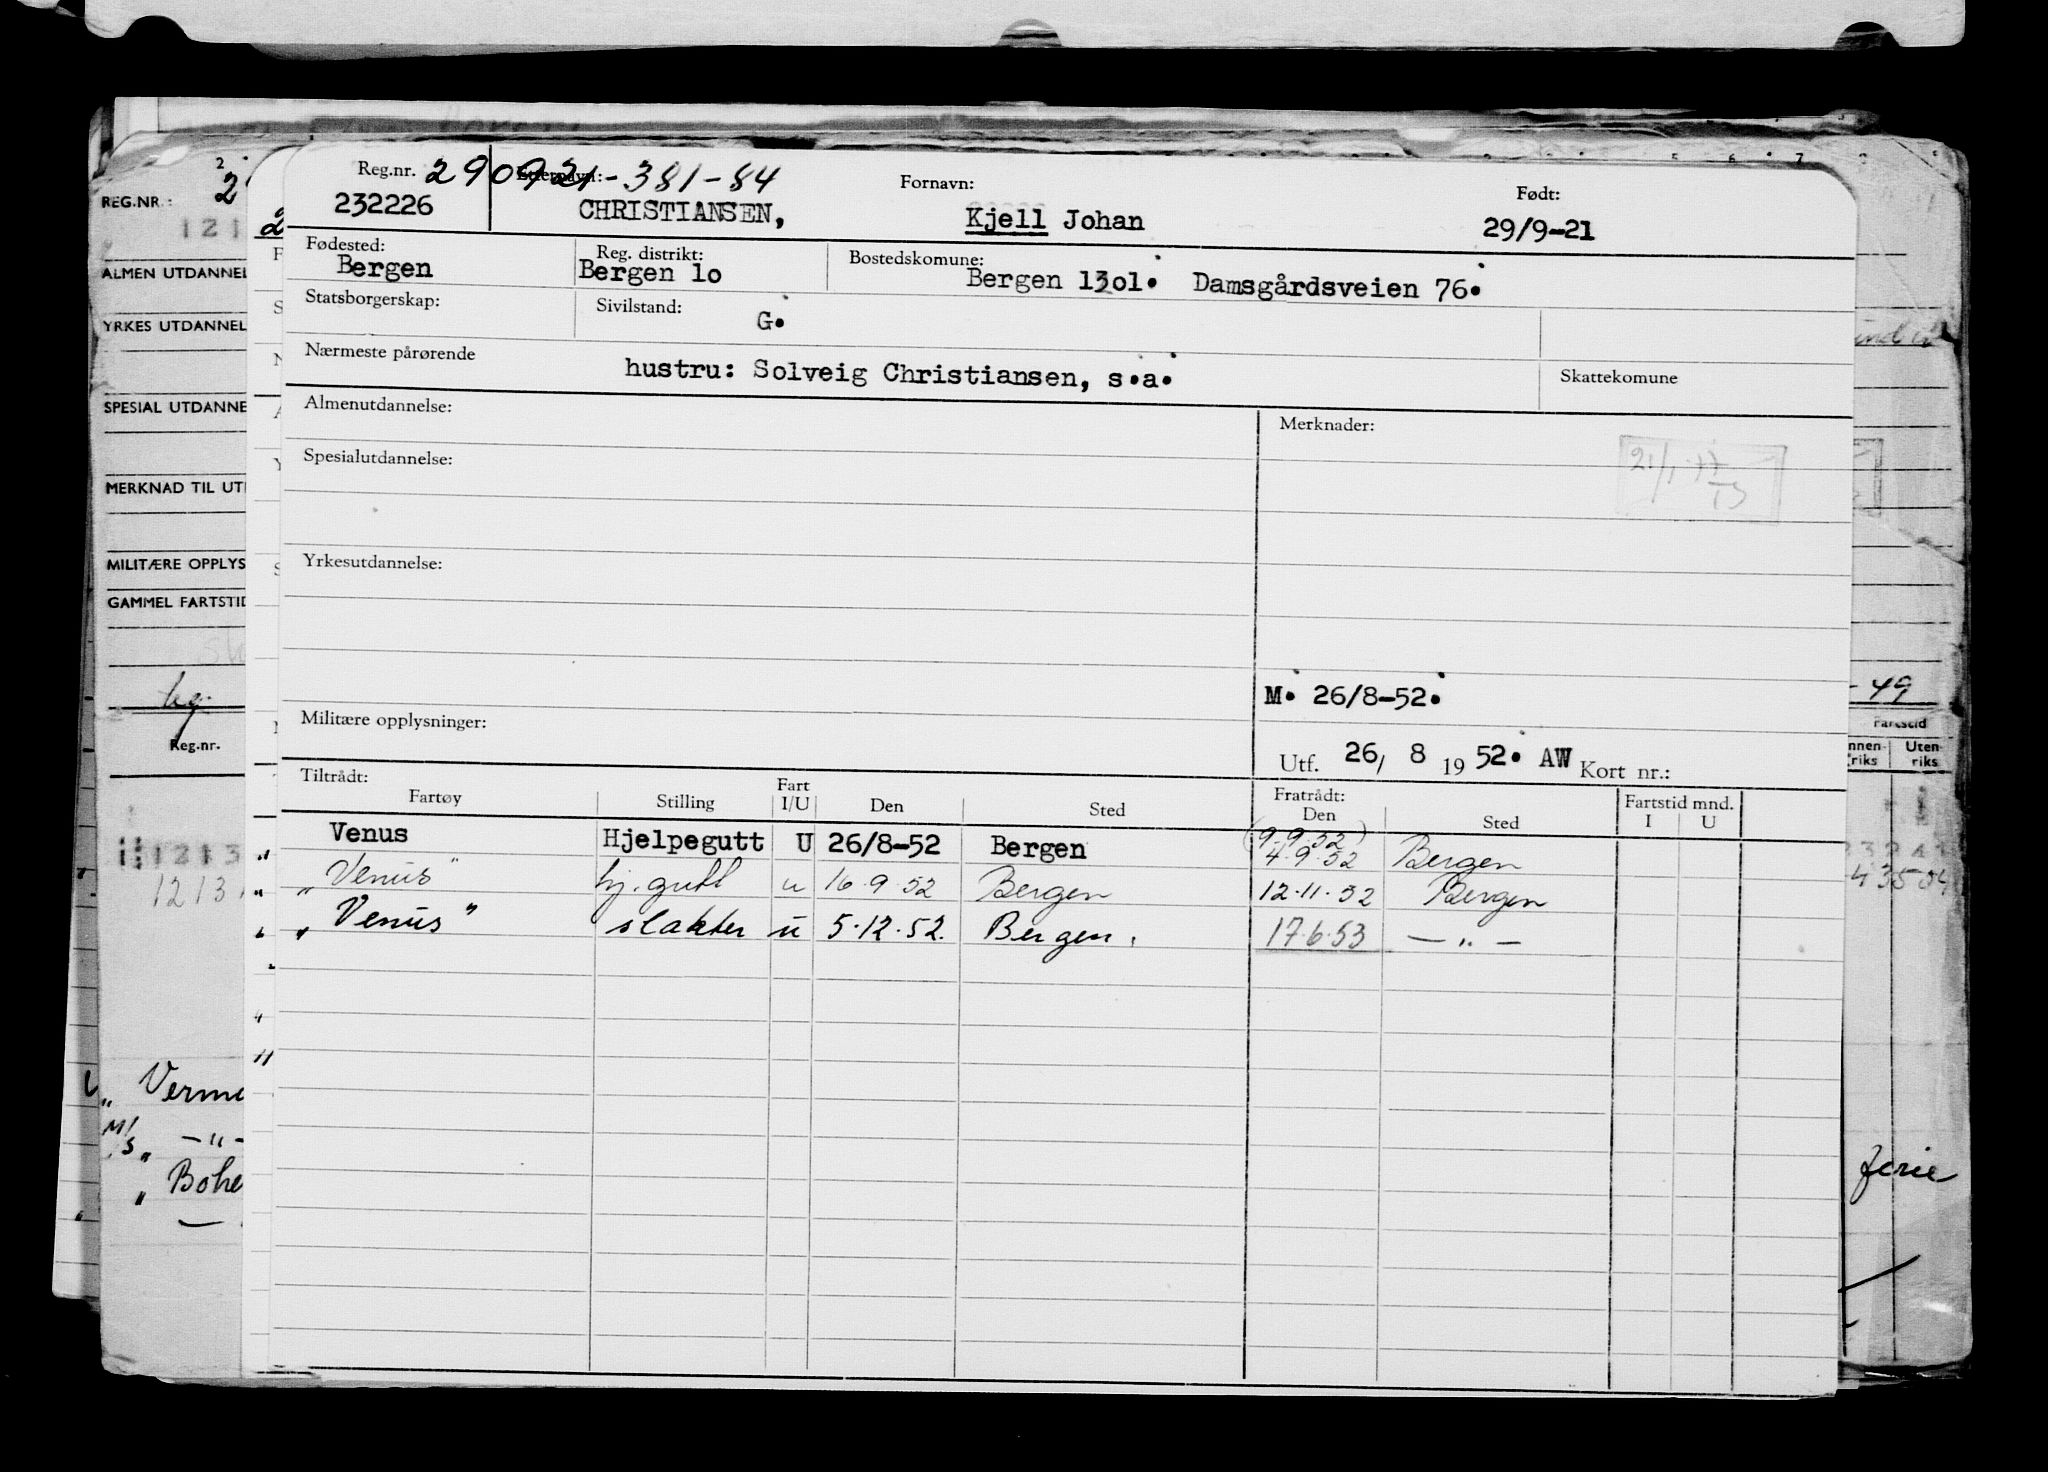 Reg.nr. 290921-381-84 Etternavn: Fornavn: Født:
232226 CHRISTIANSEN, Kjell Johan 29/9-21
Fødested: Reg. distrikt: Bostedskomune:
Bergen Bergen 1o Bergen 13o1. Damsgårdsveien 76.
Statsborgerskap: Sivilstand: G.
Nærmeste pårørende hustru: Solveig Christiansen, s.a. Skattekomune
Almenutdannelse: Merknader:
Spesialutdannelse:
Yrkesutdannelse:
M. 26/8-52.
Militære opplysninger:
Utf. 26/ 8 19 52. AW Kort nr.:
Tiltrådt: Fratrådt:
Fartøy Stilling Fart I/U Den Sted Den Sted Fartstid mnd. I U
Venus Hjelpegutt U 26/8-52 Bergen (9.9.52) 4.9.52 Bergen
"Venus" hj.gutt u 16.9.52 Bergen 12.11.52 Bergen
"Venus" slakter u 5.12.52. Bergen. 17.6.53 — " —
REG.NR.:
ALMEN UTDANNEL
YRKES UTDANNEL
SPESIAL UTDANNE
MERKNAD TIL UT
MILITÆRE OPPLYS
GAMMEL FARTSTID
Reg.nr.
M/S
— " —
- 49
Fartstid
nnen- Uten-
riks riks
ferie